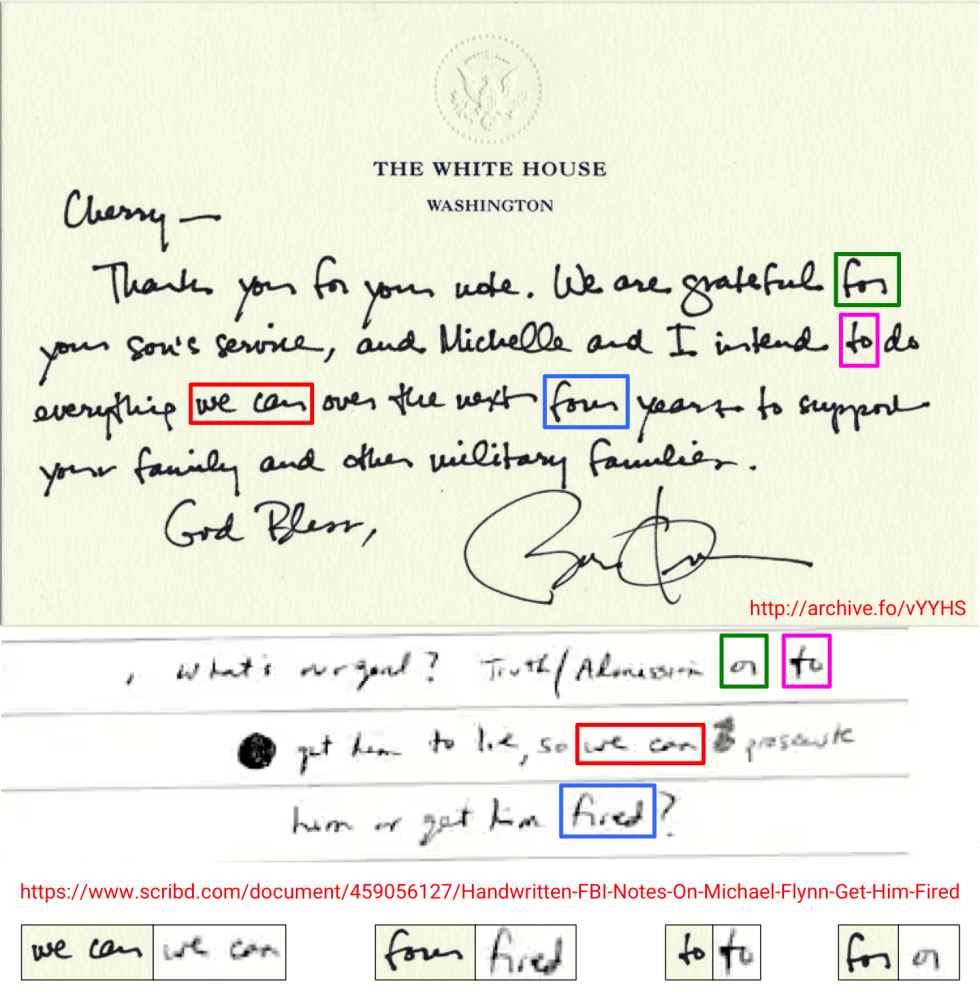 THE WHITE HOUSE
WASHINGTON
Cherry —
Thank you for your note. We are grateful for
your son's service, and Michelle and I intend to do
everything we can over the next four years to support
your family and other military families.
God Bless,
http://archive.fo/vYYHS
, What's our goal? Truth/Admission or to
get him to lie, so we can prosecute
him or get him fired?
https://www.scribd.com/document/459056127/Handwritten-FBI-Notes-On-Michael-Flynn-Get-Him-Fired
we can we can four fired to to for or